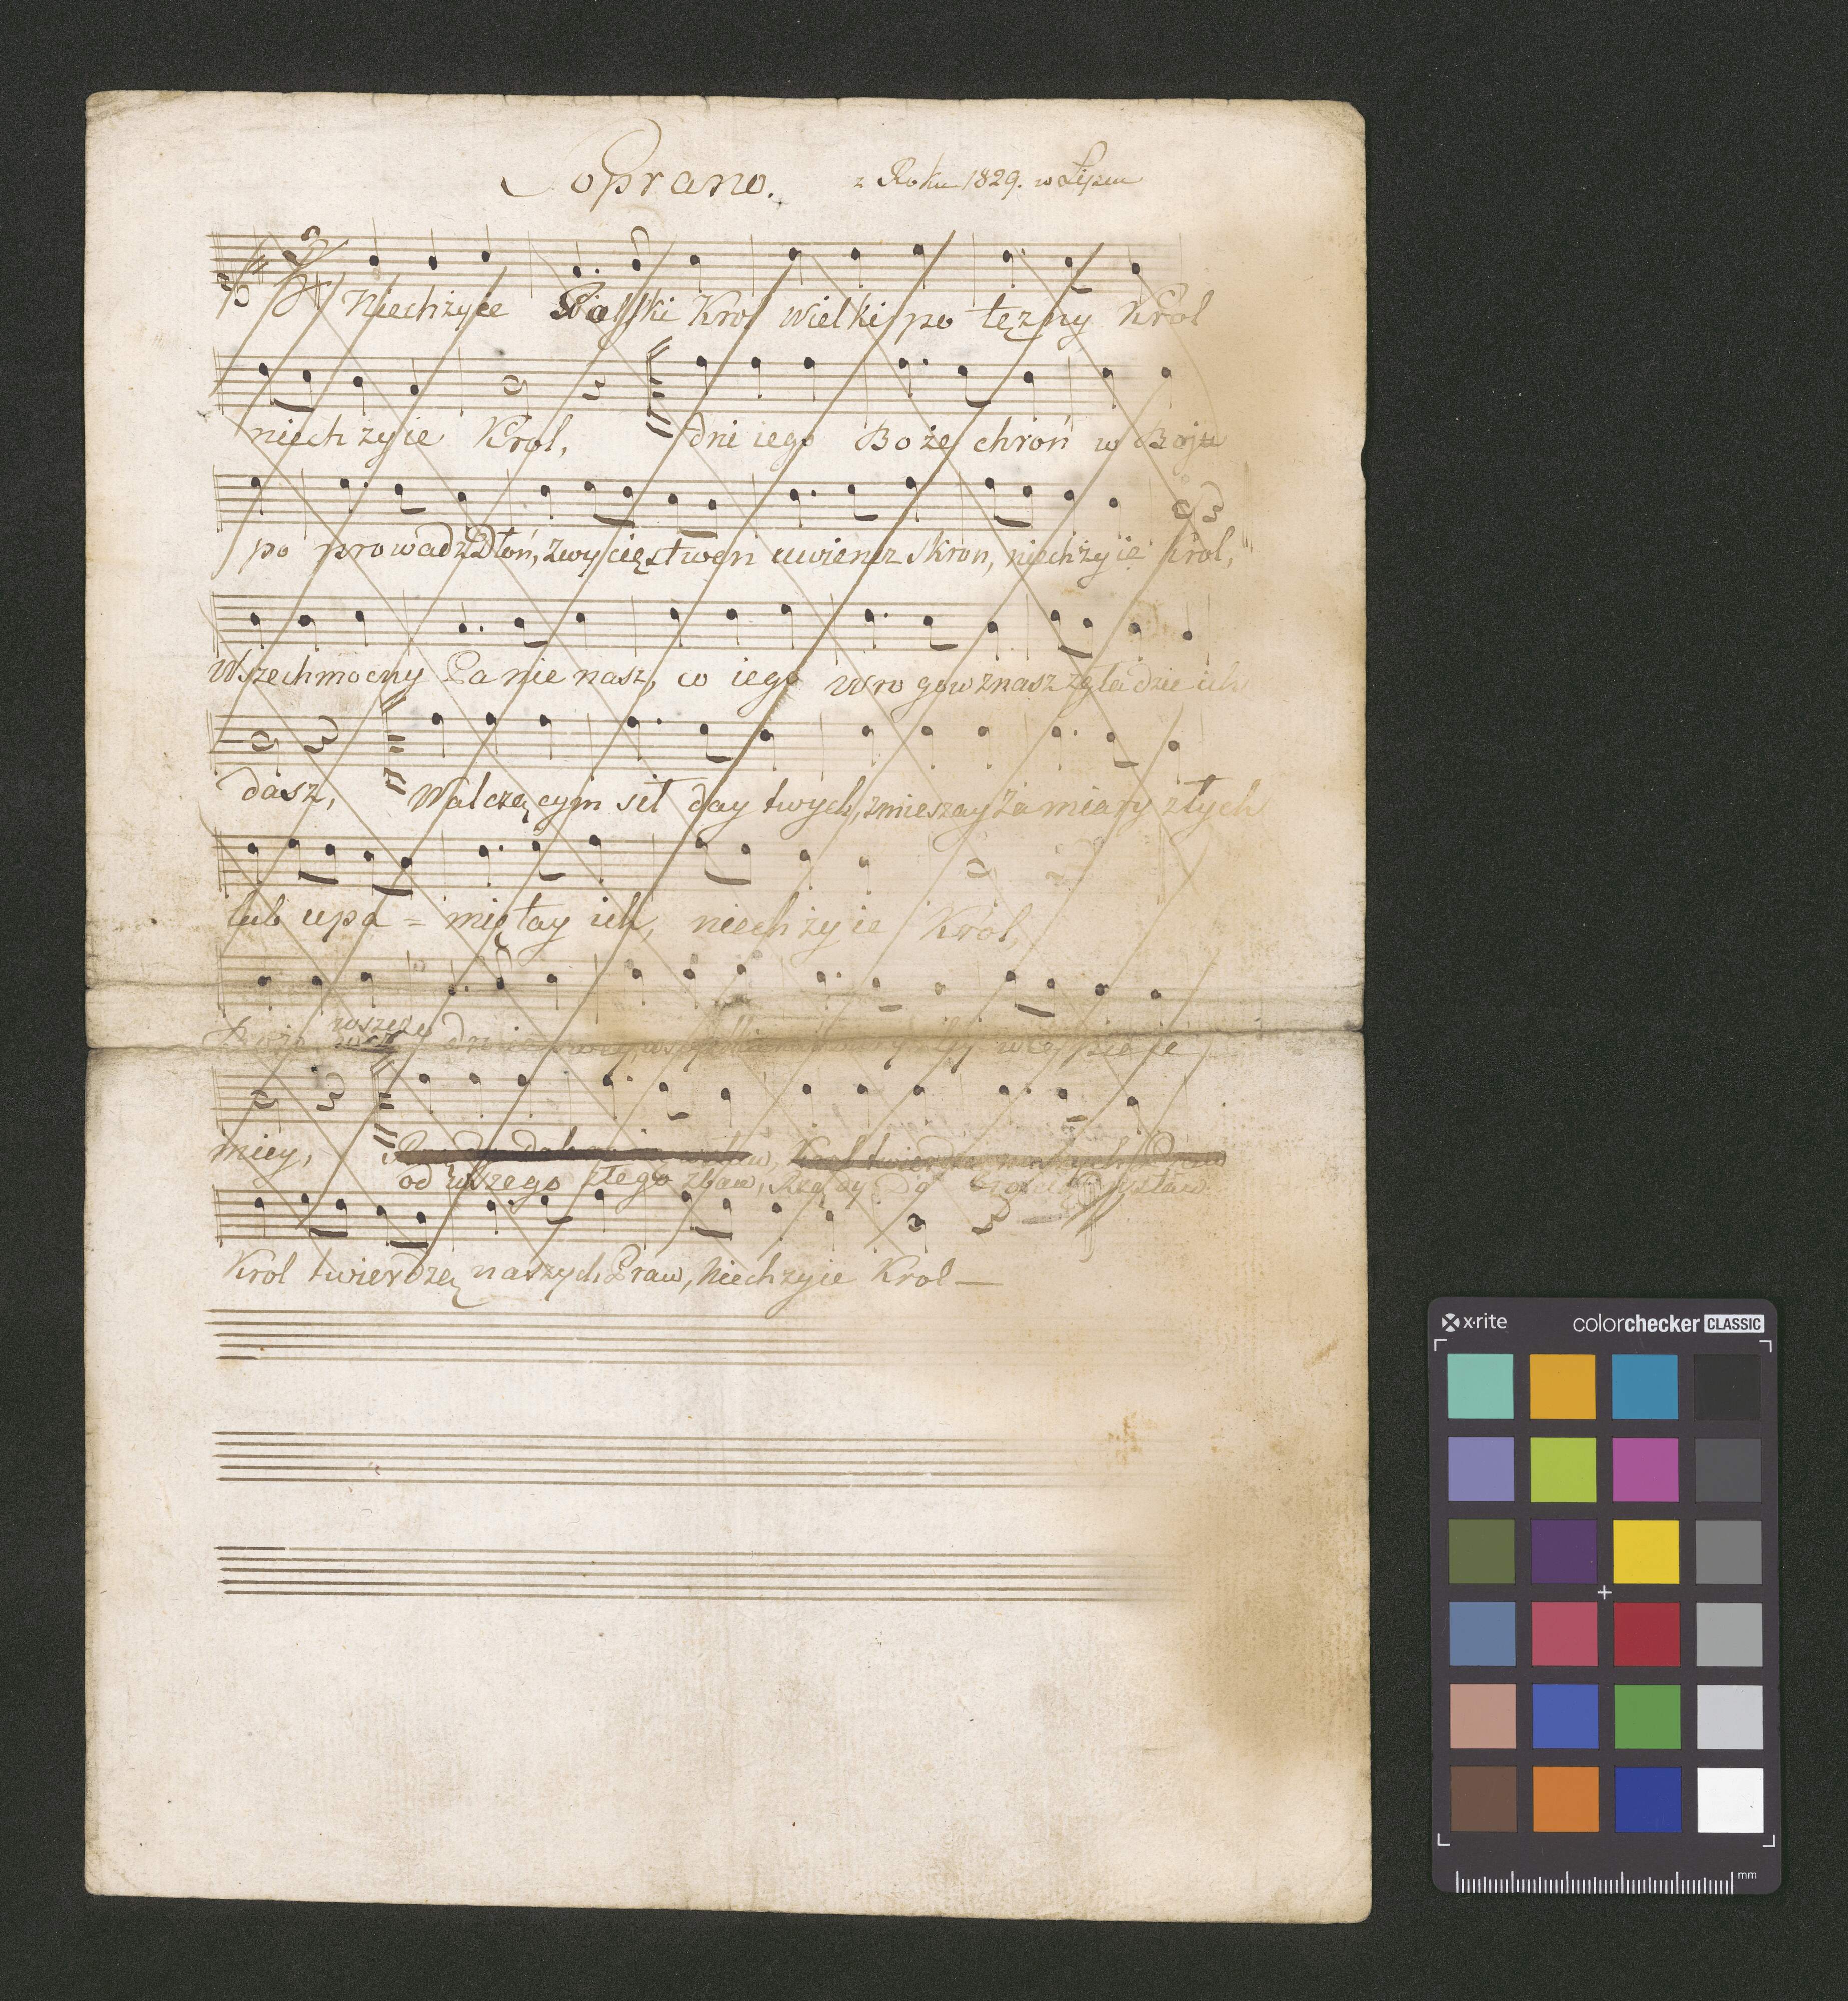 Soprano. z Roku 1829. w Lipcu
Niechżyie Polski Krol wielki po tężny Krol
niech żyie Krol, dni iego Boże chroń w Boju
po prowadź Dłoń, zwy cięstwen uwiencz skron, niech żyie krol,
Wszechmocny Panie nasz, co iego wro gow znasz zgła dzie ich
dasz, Walczącym sił day twych, zmieszay zamiary złych
lub upa = miętay ich, niech żyie Król,
wszego
miey,
od wszego złego zbaw, Rządy
Krol twierdzą naszych Praw, Niech zyie Krol —
x·rite colorchecker CLASSIC
mm